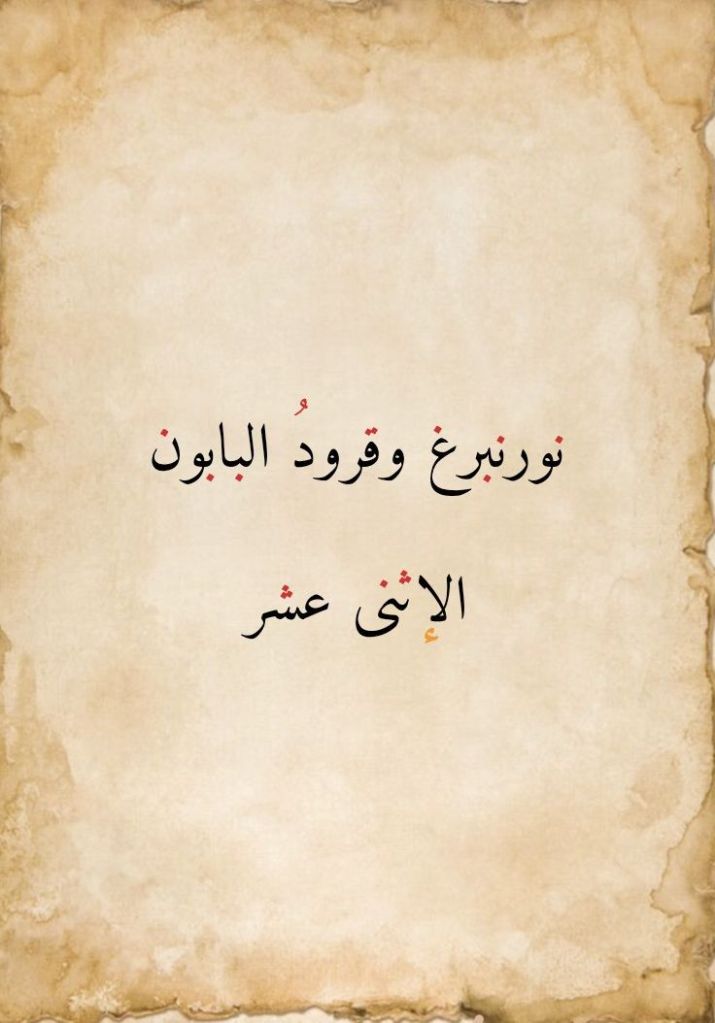 نورنبرغ وقرودُ البابون
الإثنى عشر